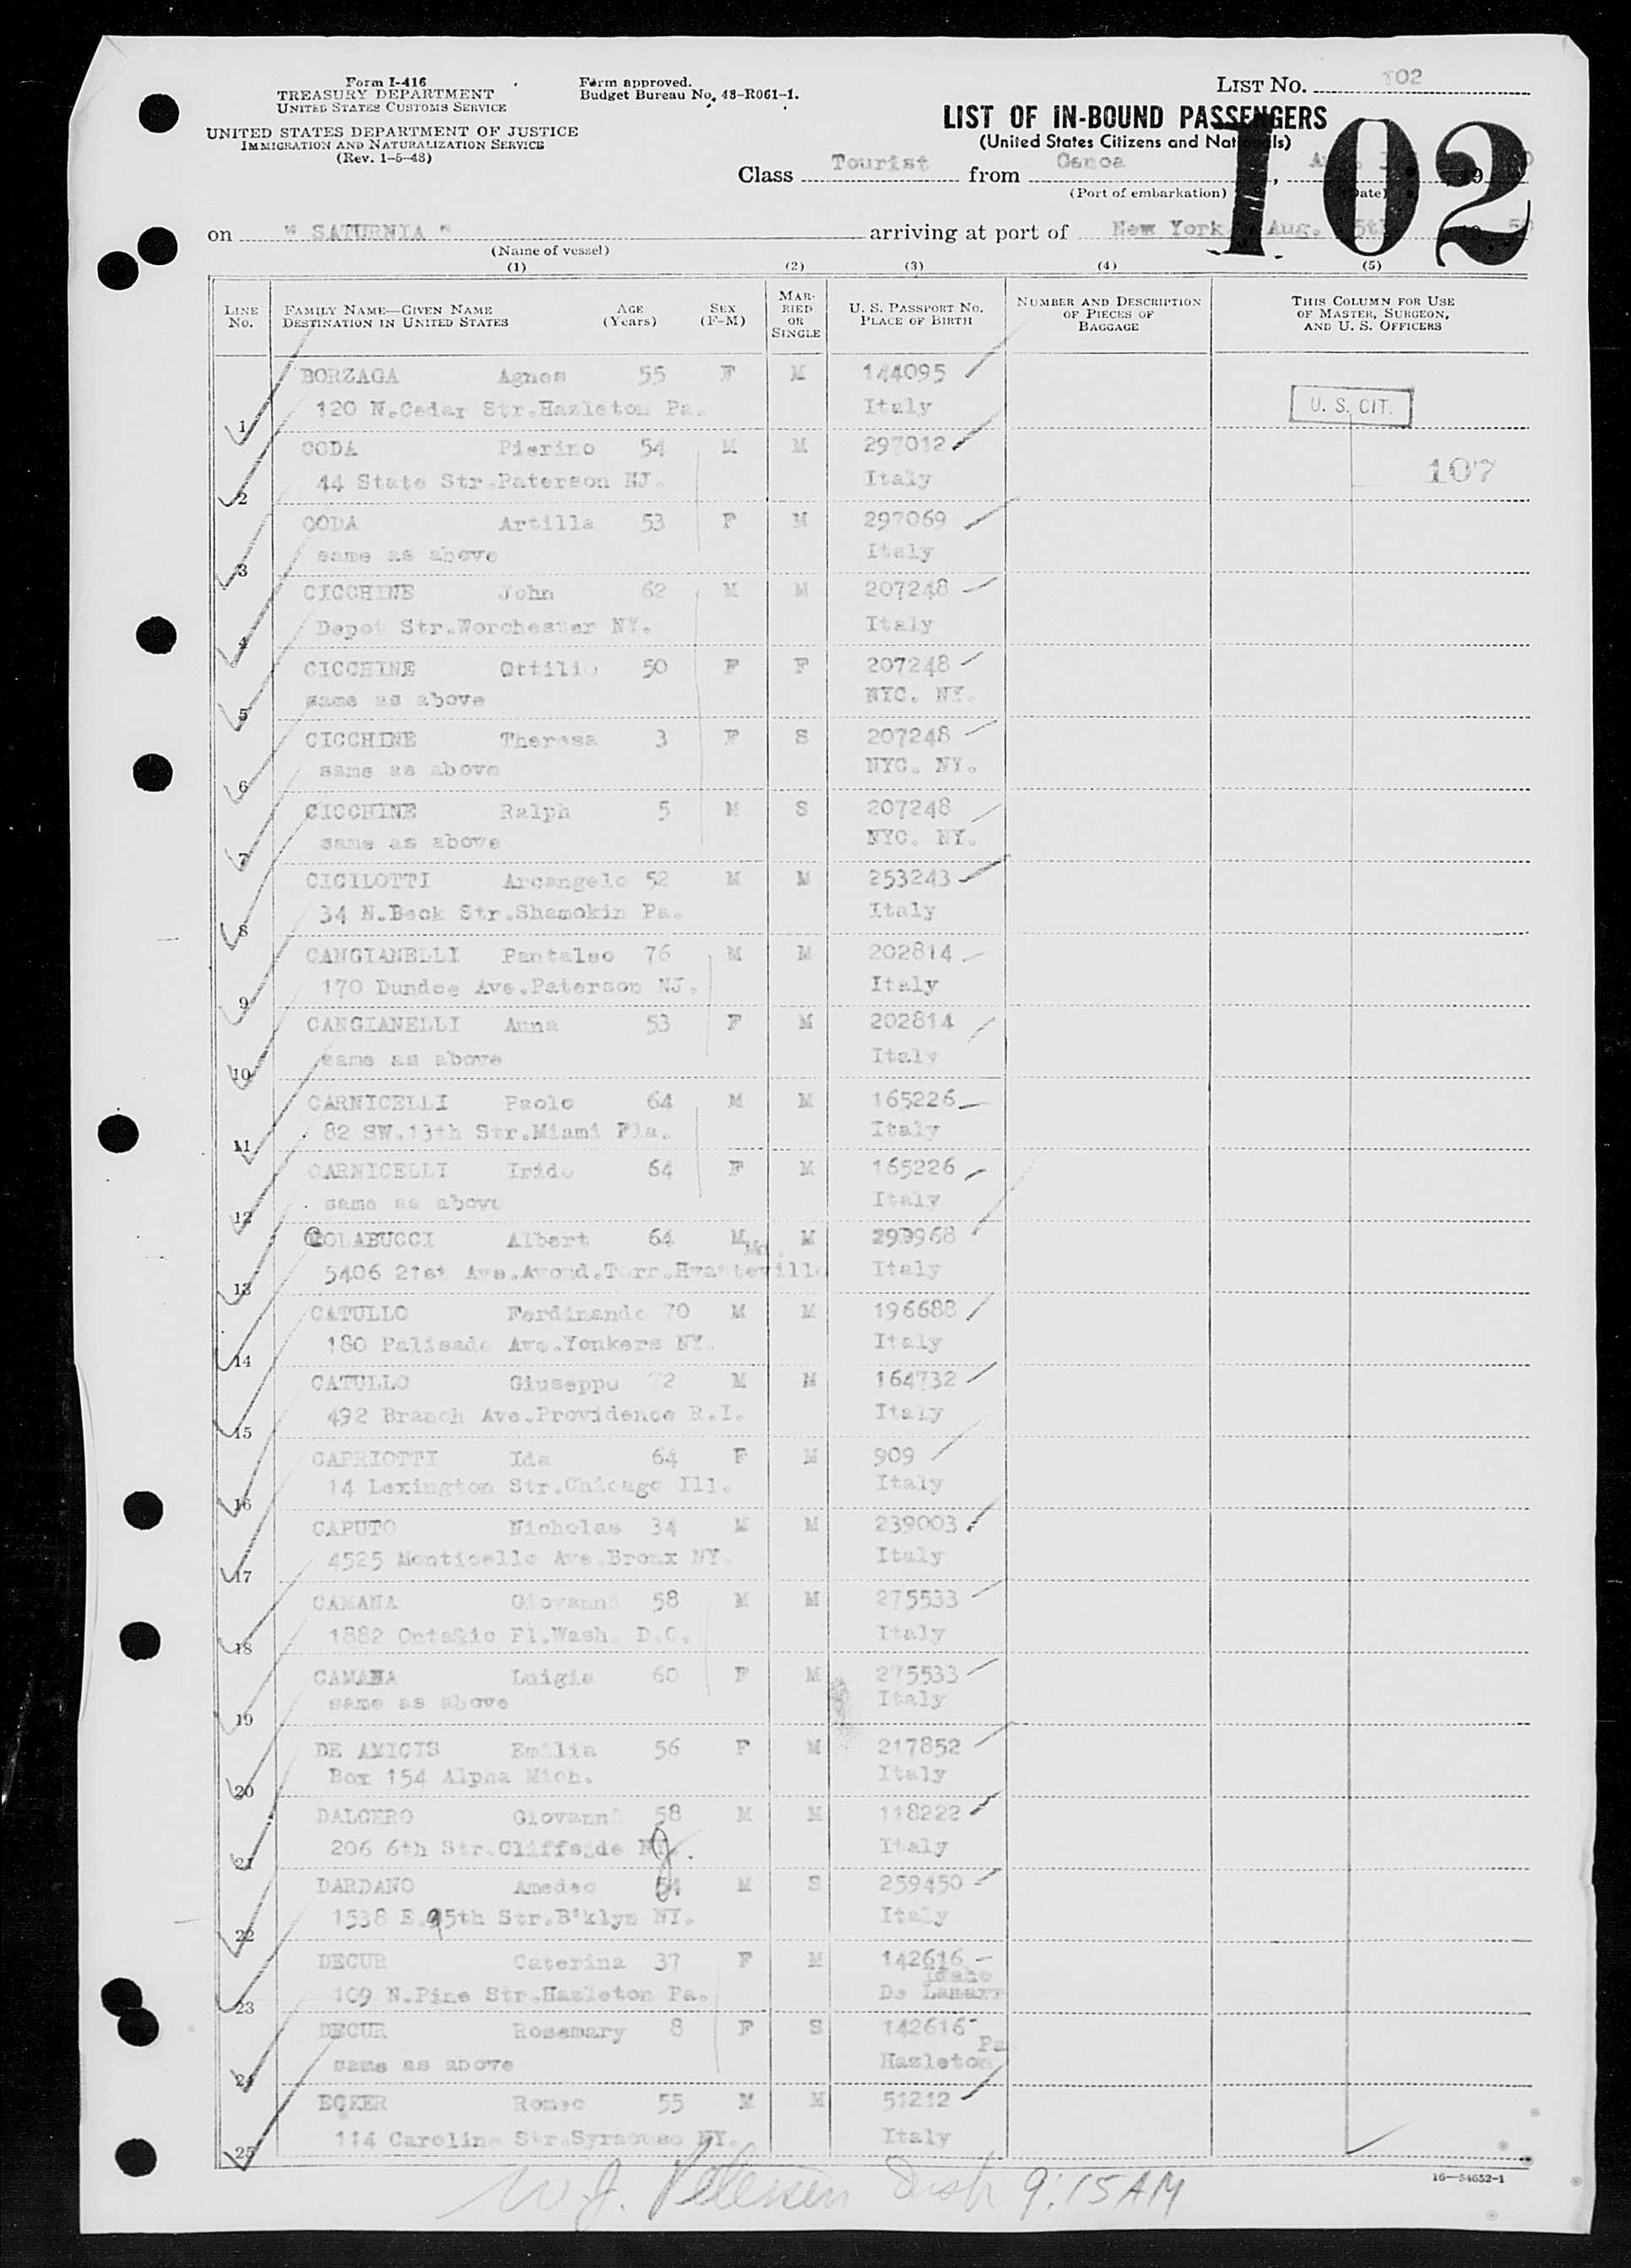 Form I-416
TREASURY DEPARTMENT
UNITED STATES CUSTOMS SERVICE
UNITED STATES DEPARTMENT OF JUSTICE
IMMIGRATION AND NATURALIZATION SERVICE
(Rev. 1-5-48)
Form approved.
Budget Bureau No. 48-R061-1.
LIST No. 102
LIST OF IN-BOUND PASSENGERS
(United States Citizens and Nationals)
102
Class Tourist from Genoa , 19
(Port of embarkation) (Date)
on " SATURNIA " arriving at port of New York, Aug.
(Name of vessel)
(1) (2) (3) (4) (5)
LINE No. FAMILY NAME—GIVEN NAME DESTINATION IN UNITED STATES AGE (Years) SEX (F-M) MARRIED OR SINGLE U. S. PASSPORT No. PLACE OF BIRTH NUMBER AND DESCRIPTION OF PIECES OF BAGGAGE THIS COLUMN FOR USE OF MASTER, SURGEON, AND U. S. OFFICERS
BORZAGA Agnes 55 F M 144095
1 120 N.Cedar Str.Hazleton Pa. Italy U. S. CIT.
CODA Pierino 54 M M 297012 107
2 44 State Str.Paterson NJ. Italy
CODA Artilla 53 F M 297069
3 same as above Italy
CICCHINE John 62 M M 207248
4 Depot Str.Worchester NY. Italy
CICCHINE Ottilio 50 F F 207248
5 same as above NYC. NY.
CICCHINE Theresa 3 F S 207248
6 same as above NYC. NY.
CICCHINE Ralph 5 M S 207248
7 same as above NYC. NY.
CICILOTTI Arcangelo 52 M M 253243
8 34 N.Beck Str.Shamokin Pa. Italy
CANGIANELLI Pantaleo 76 M M 202814
9 170 Dundee Ave.Paterson NJ. Italy
CANGIANELLI Anna 53 F M 202814
10 same as above Italy
CARNICELLI Paolo 64 M M 165226
11 82 SW.13th Str.Miami Fla. Italy
CARNICELLI Irido 64 F M 165226
12 same as above Italy
COLABUCCI Albert 64 M M
13 5406 21st Ave.Avond.Terr.Hyattsville Md. Italy
CATULLO Ferdinando 70 M M 196688
14 180 Palisade Ave.Yonkers NY. Italy
CATULLO Giuseppe 72 M M 164732
15 492 Branch Ave.Providence R.I. Italy
CAPRIOTTI Ida 64 F M 909
16 14 Lexington Str.Chicago Ill. Italy
CAPUTO Nicholas 34 M M 239003
17 4525 Monticello Ave.Bronx NY. Italy
CAMANA Giovanni 58 M M 275533
18 1882 Ontario Pl.Wash. D.C. Italy
CAMANA Luigia 60 F M 275533
19 same as above Italy
DE AMICIS Emilia 56 F M 217852
20 Box 154 Alpha Mich. Italy
DALCERO Giovanni 58 M M 118222
21 206 6th Str.Cliffside NJ. Italy
DARDANO Amedeo 54 M S 259450
22 1538 E.95th Str.B'klyn NY. Italy
DECUR Caterina 37 F M 142616
23 109 N.Pine Str.Hazleton Pa. De Lamarr Idaho
DECUR Rosemary 8 F S 142616
24 same as above Hazleton Pa
ECKER Romeo 55 M M 51212
25 114 Caroline Str.Syracuse NY. Italy
16—54652-1
W. J. Petersen 9:15 AM